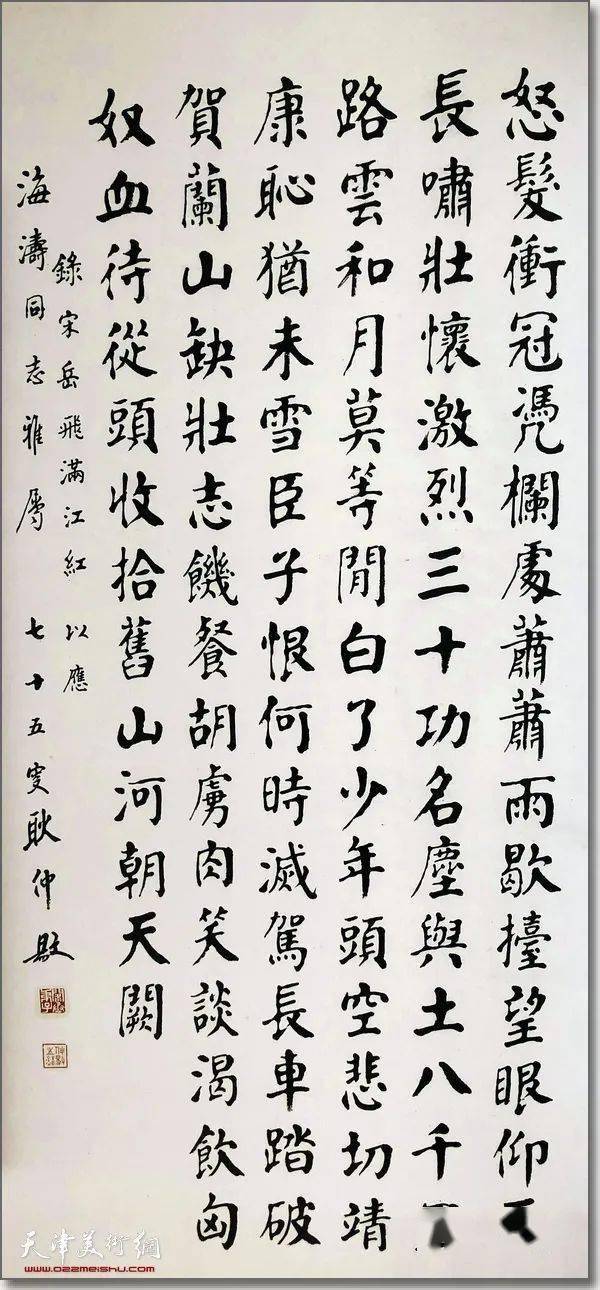 怒髮衝冠凴欄處蕭蕭雨歇擡望眼仰
長嘯壯懷激烈三十功名塵與土八千
路雲和月莫等閒白了少年頭空悲切靖
康恥猶未雪臣子恨何時滅駕長車踏破
賀蘭山缺壯志饑餐胡虜肉笑談渴飲匈
奴血待從頭收拾舊山河朝天闕
錄宋岳飛滿江紅 以應
海濤同志雅屬 七十五叟耿仲敭
天津美術網
www.022meishu.com